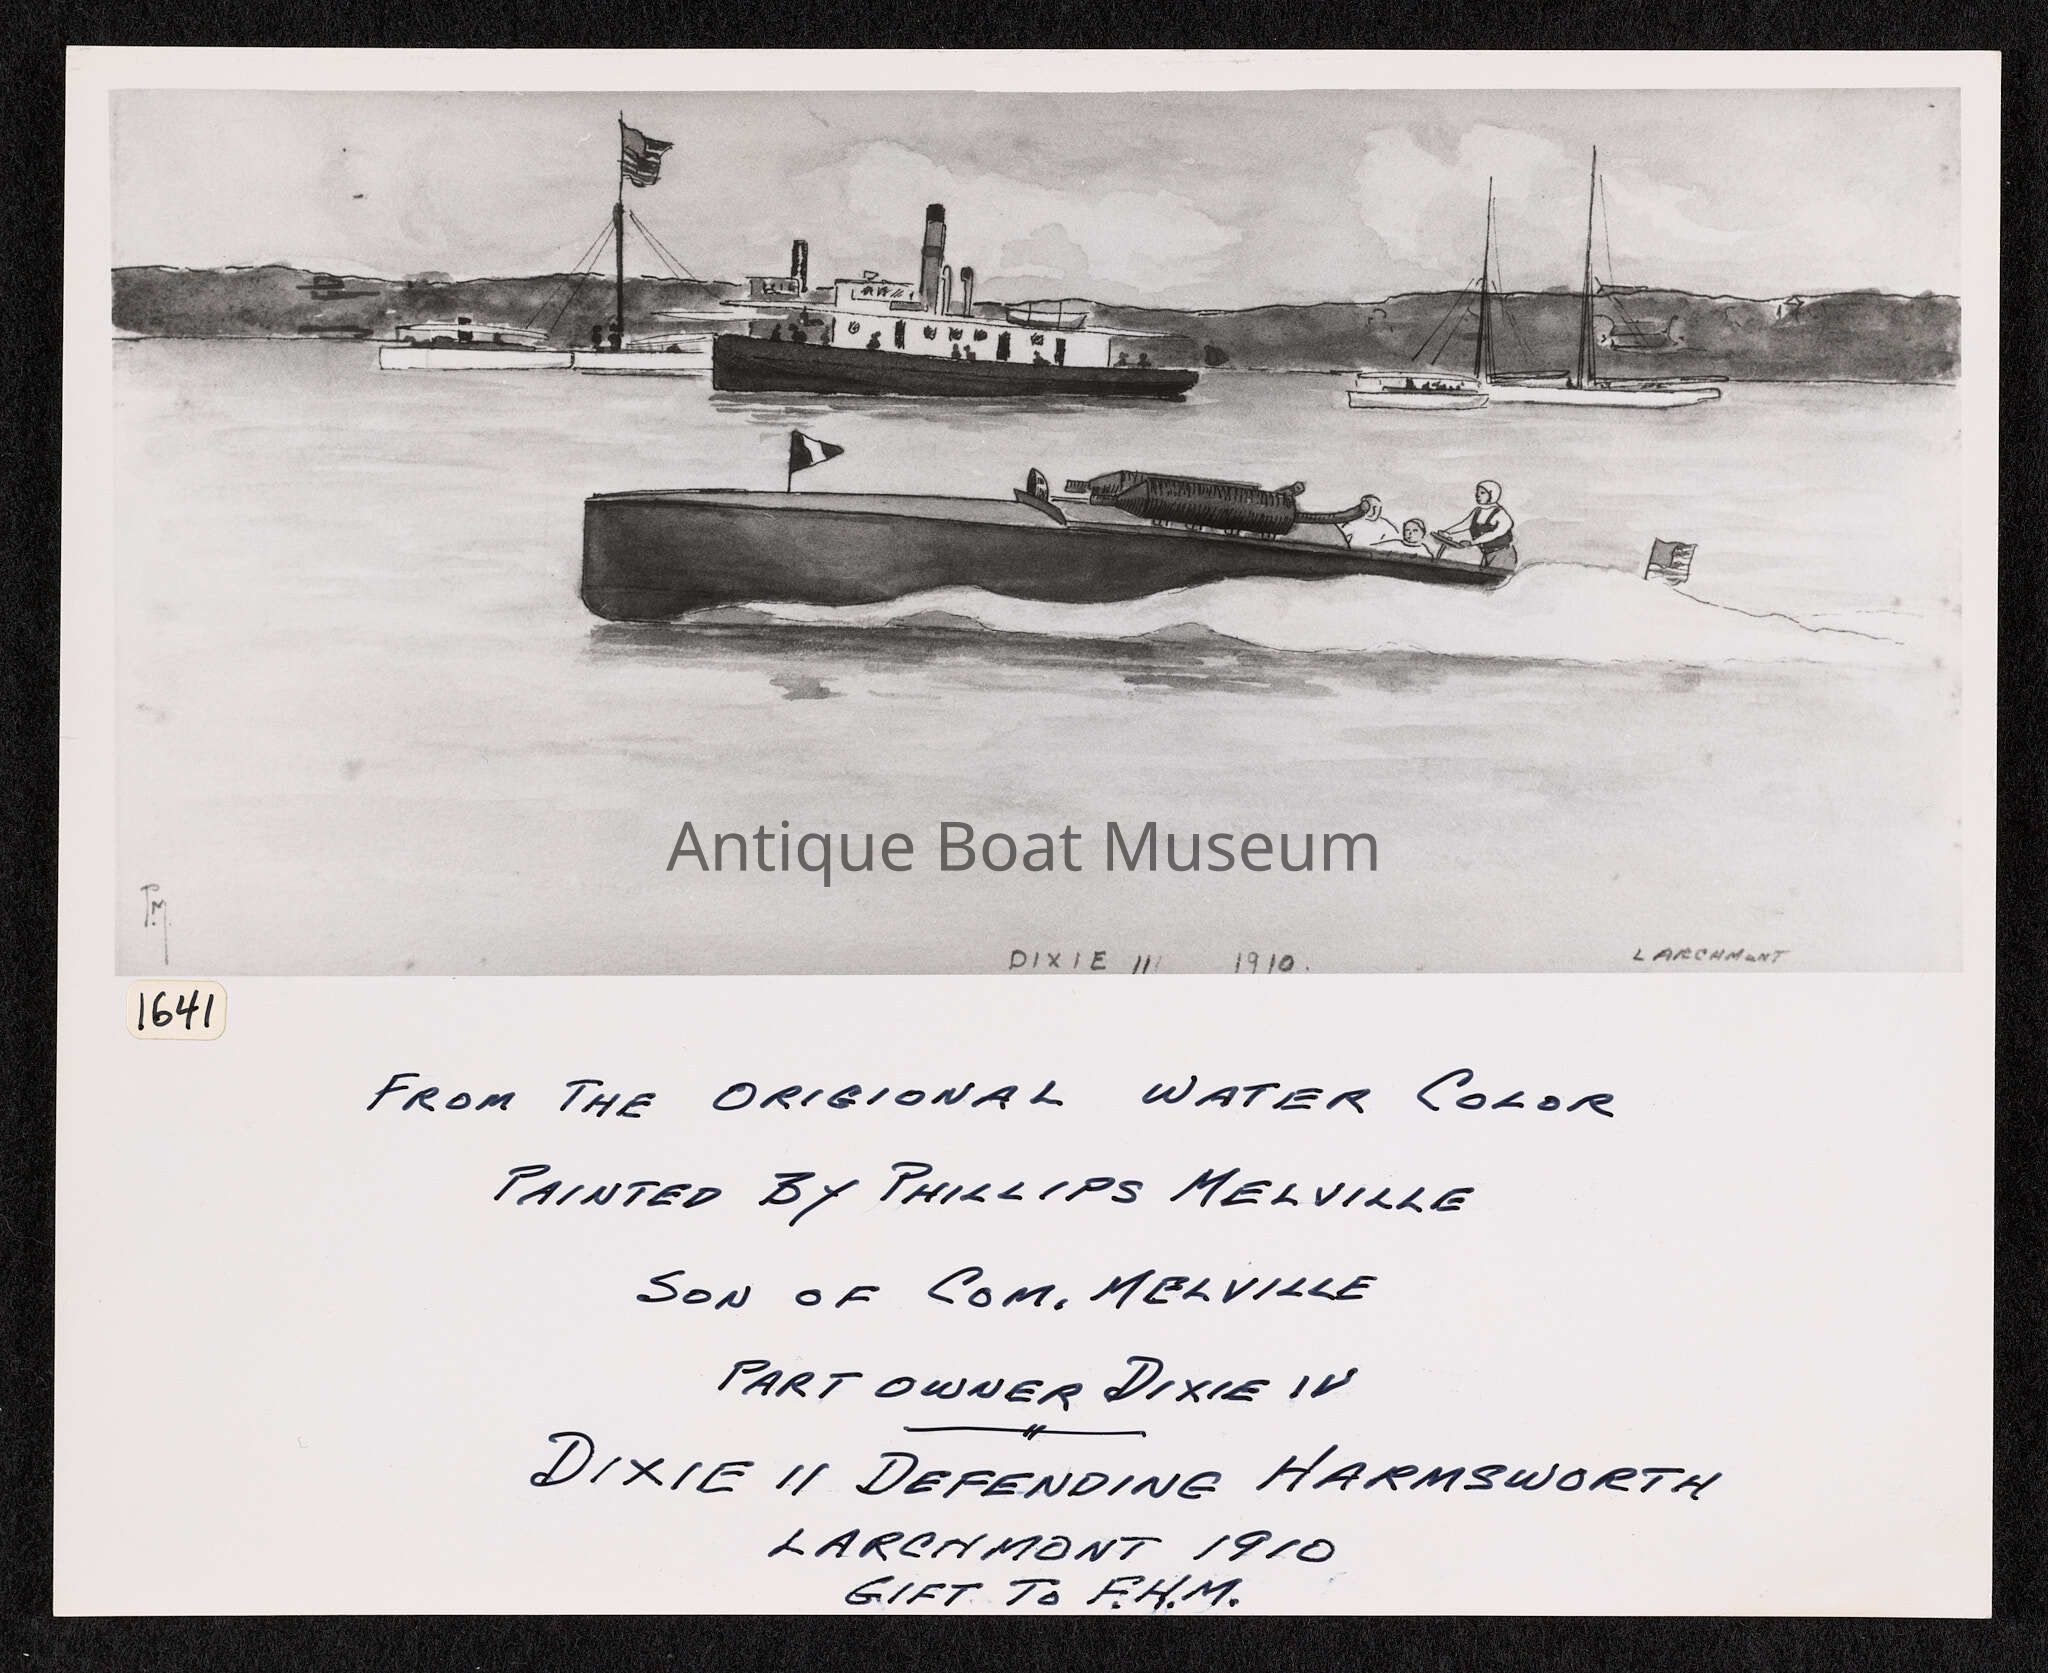 Antique Boat Museum
P.M.
DIXIE III 1910. LARCHMONT
1641
FROM THE ORIGIONAL WATER COLOR
PAINTED BY PHILLIPS MELVILLE
SON OF COM. MELVILLE
PART OWNER DIXIE IV
DIXIE II DEFENDING HARMSWORTH
LARCHMONT 1910
GIFT TO F.H.M.